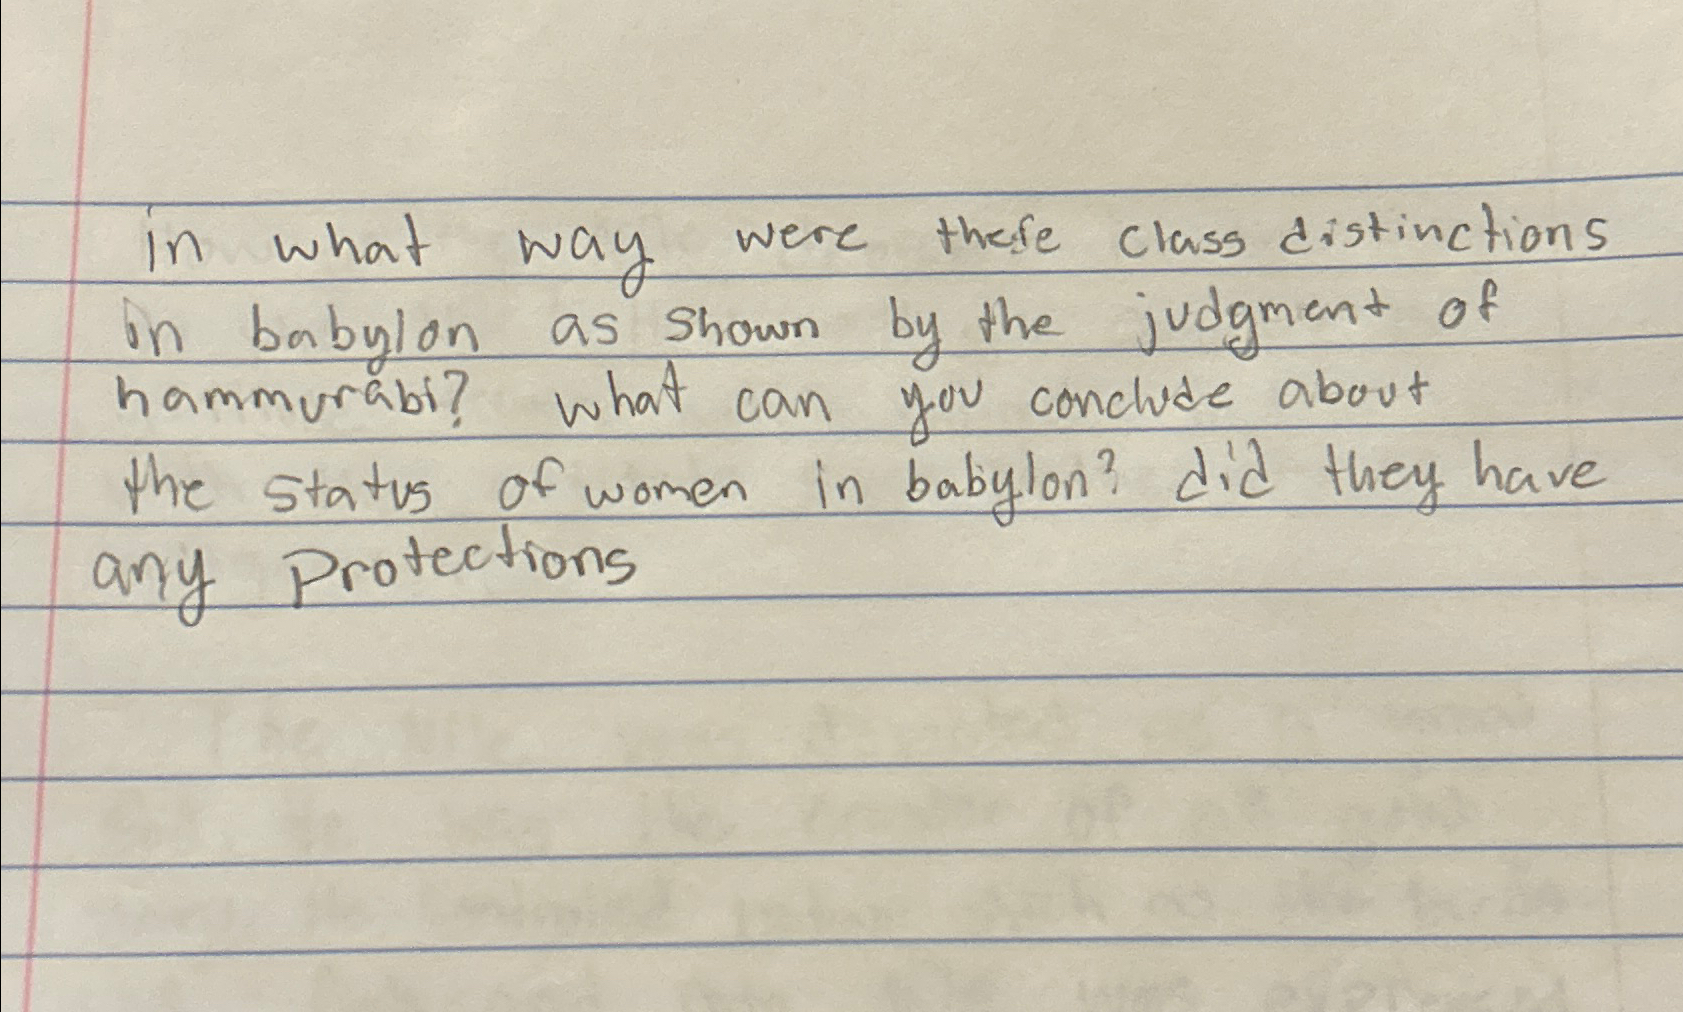 in what way were there class distinctions
in babylon as shown by the judgment of
hammurabi? what can you conclude about
the status of women in babylon? did they have
any protections